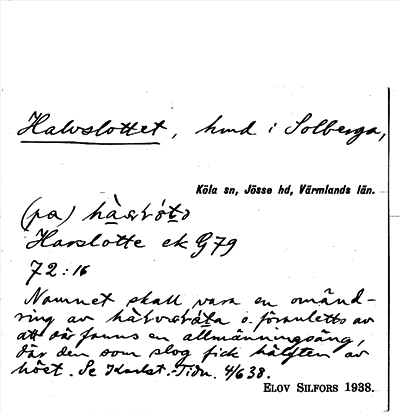 Halvslottet, hmd i Solberga,
Köla sn, Jösse hd, Värmlands län.
(pa)
Harslotte ek G79
72:16
Namnet skall vara en omänd-
ring av o. föranletts av
att där fanns en allmänningsäng,
där den som slog fick hälften av
höet. Se Karlst.-Tidn. 4/6 38.
ELOV SILFORS 1938.